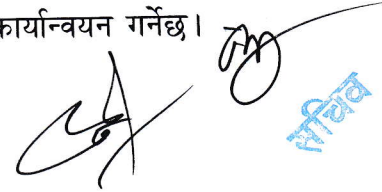 कार्यान्वयन गर्नेछ।
सचिव